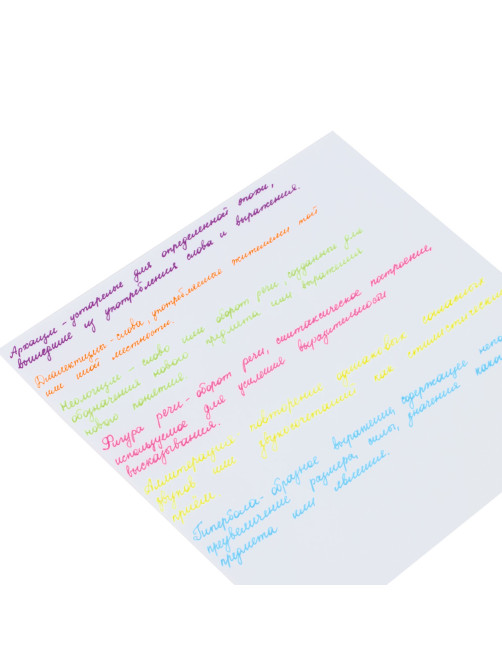 Архаизм - устарелые для определенной эпохи,
вышедшие из употребления слова и выражения.
Диалектизмы - слова, употребляемые жителями той
или иной местности.
Неологизм - слово или оборот речи, созданный для
обозначения нового предмета или выражения
нового понятия
Фигура речи - оборот речи, синтаксическое построение,
используемое для усиления выразительности
высказывания.
Аллитерация повторение одинаковых
звуков или звукосочетаний, как стилистический
прием.
Гипербола - образное выражение, содержащее непо
преувеличение размера, силы, значения какого
предмета или явление.